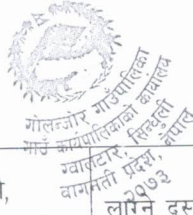 गोलन्जोर गाउँपालिका
गाउँ कार्यपालिकाको कार्यालय
ग्वालटार, सिन्धुली
बागमती प्रदेश, नेपाल
२०७३
लाग्ने